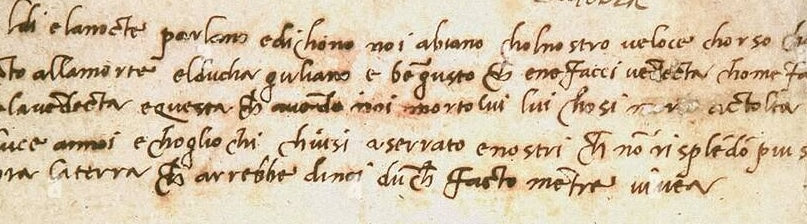 ldi e la nocte parlano e dichono noi abiano chol nostro veloce chorso
cto alla morte el ducha giuliano e bē giusto ch̄ e ne facci vēdecta chome fa
la vēdecta e questa ch̄ avendo noi morto lui lui chosi a tolta
luce a noi e chogli ochi chiusi a serrato e nostri ch̄ nō risplēdō piu s
pra la terra ch̄ arrebbe di noi dūch̄ facto mētre vivea